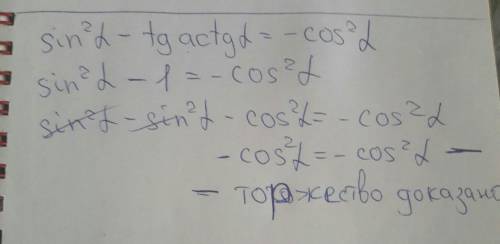 sin²α - tg αctgα = -cos²α
sin²α - 1 = -cos²α
sin²α - sin²α - cos²α = -cos²α
-cos²α = -cos²α —
— торжество доказано